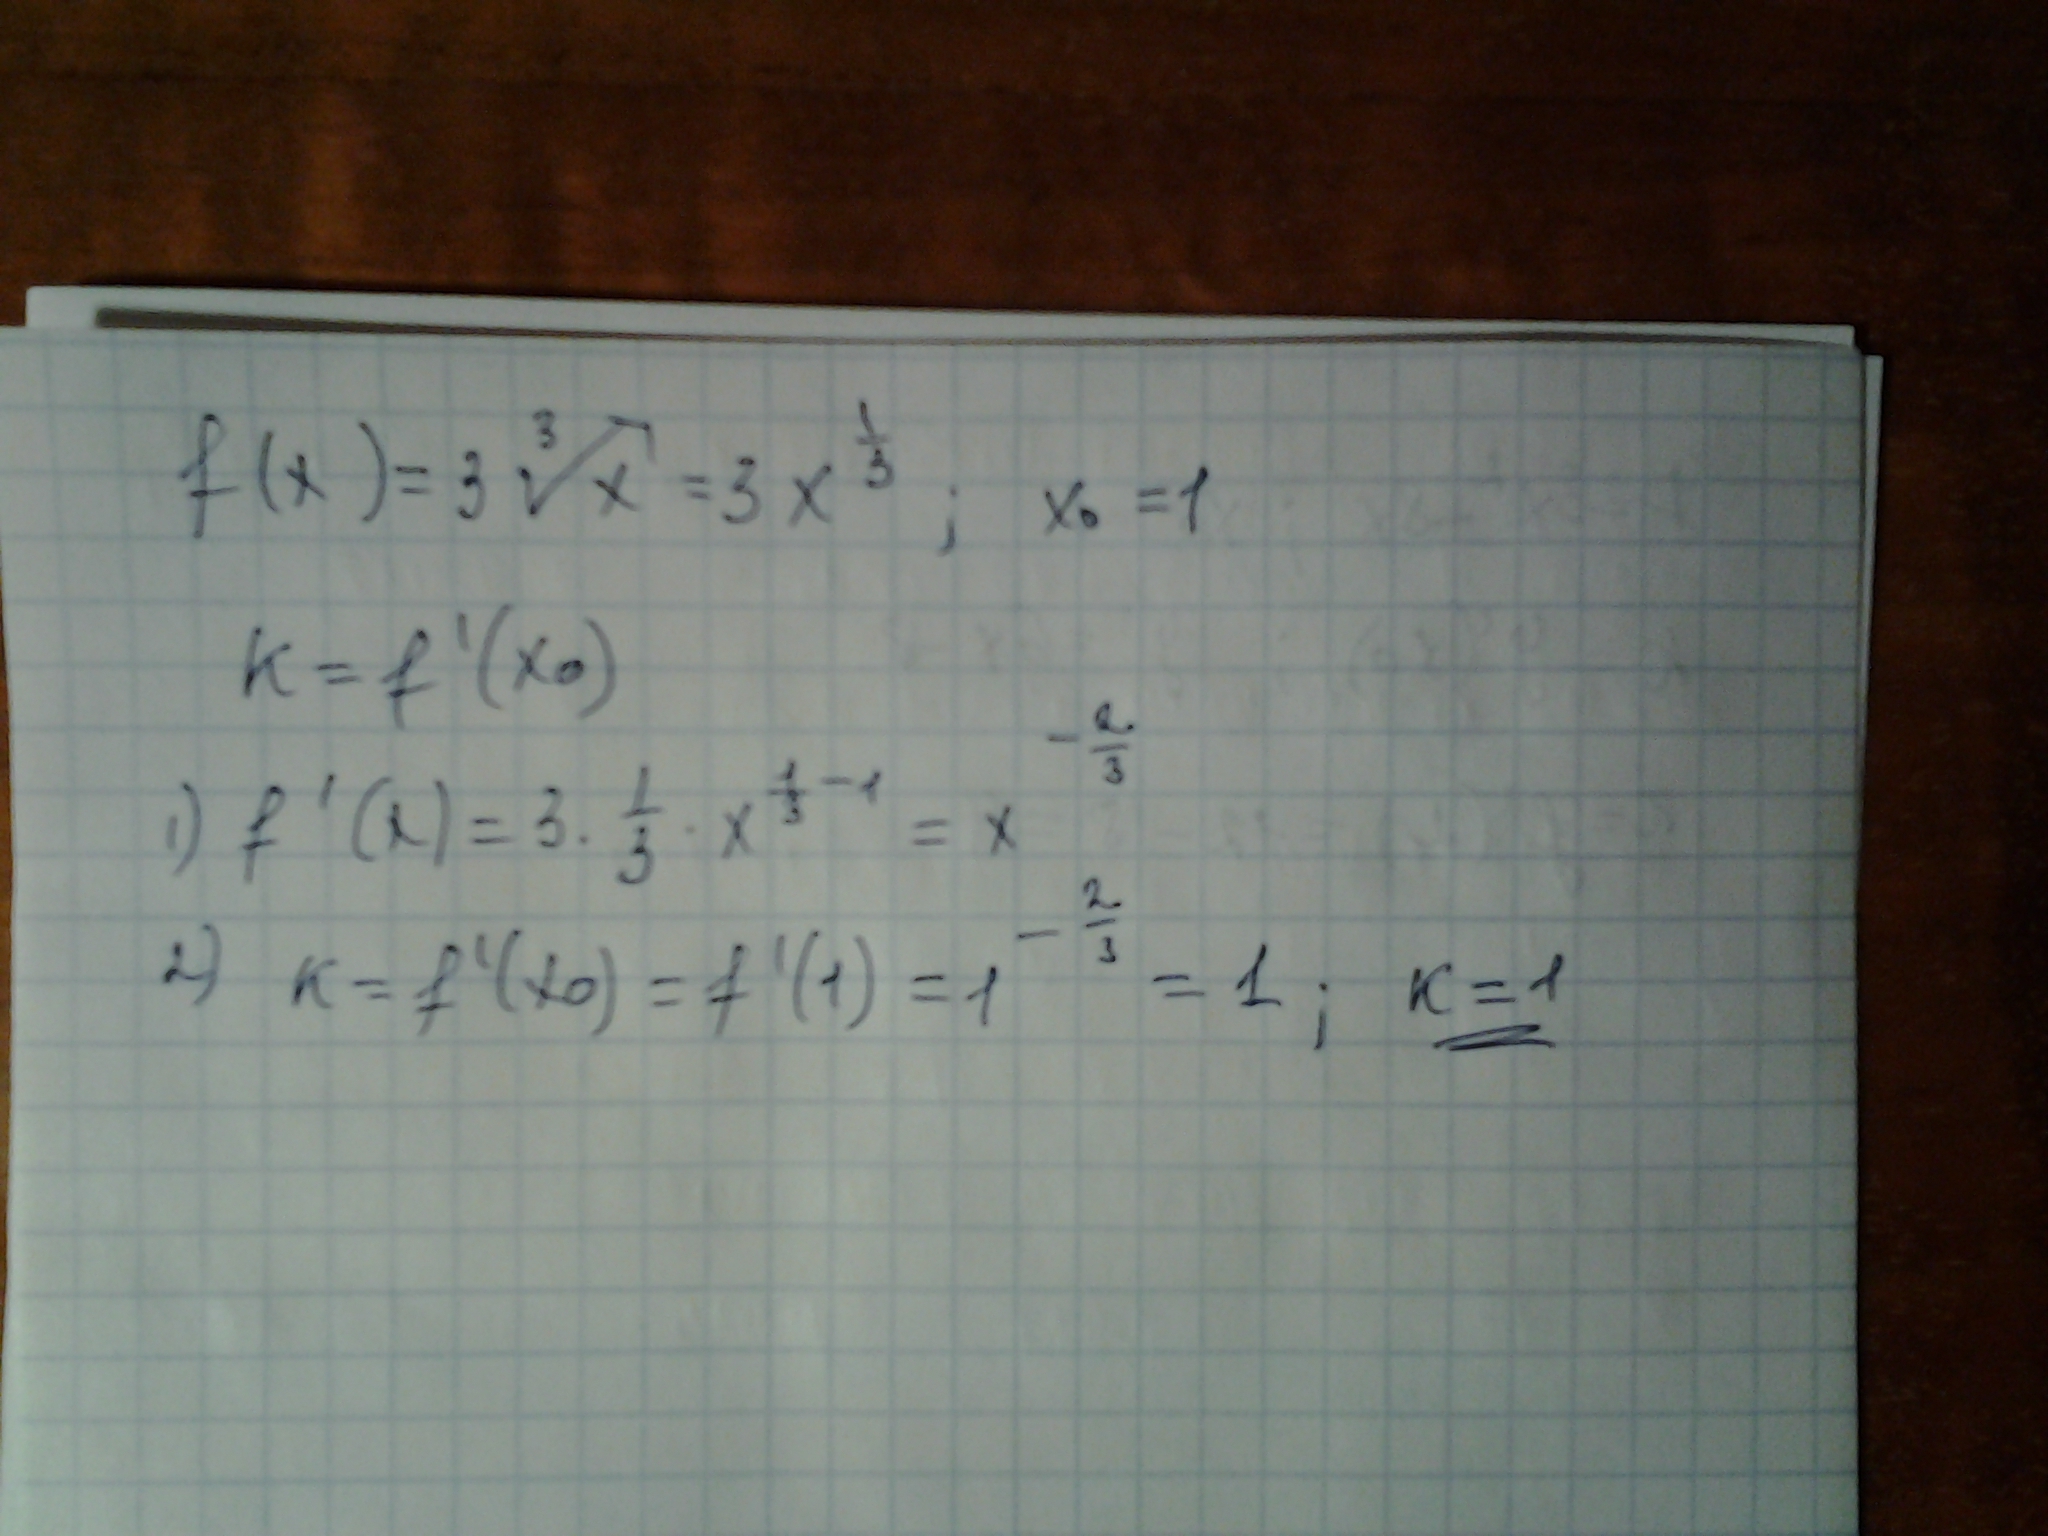 f(x) = 3∛x = 3x^(1/3) ; x₀ = 1
K = f'(x₀)
1) f'(x) = 3 · 1/3 · x^(1/3 - 1) = x^(-2/3)
2) K = f'(x₀) = f'(1) = 1^(-2/3) = 1 ; K = 1